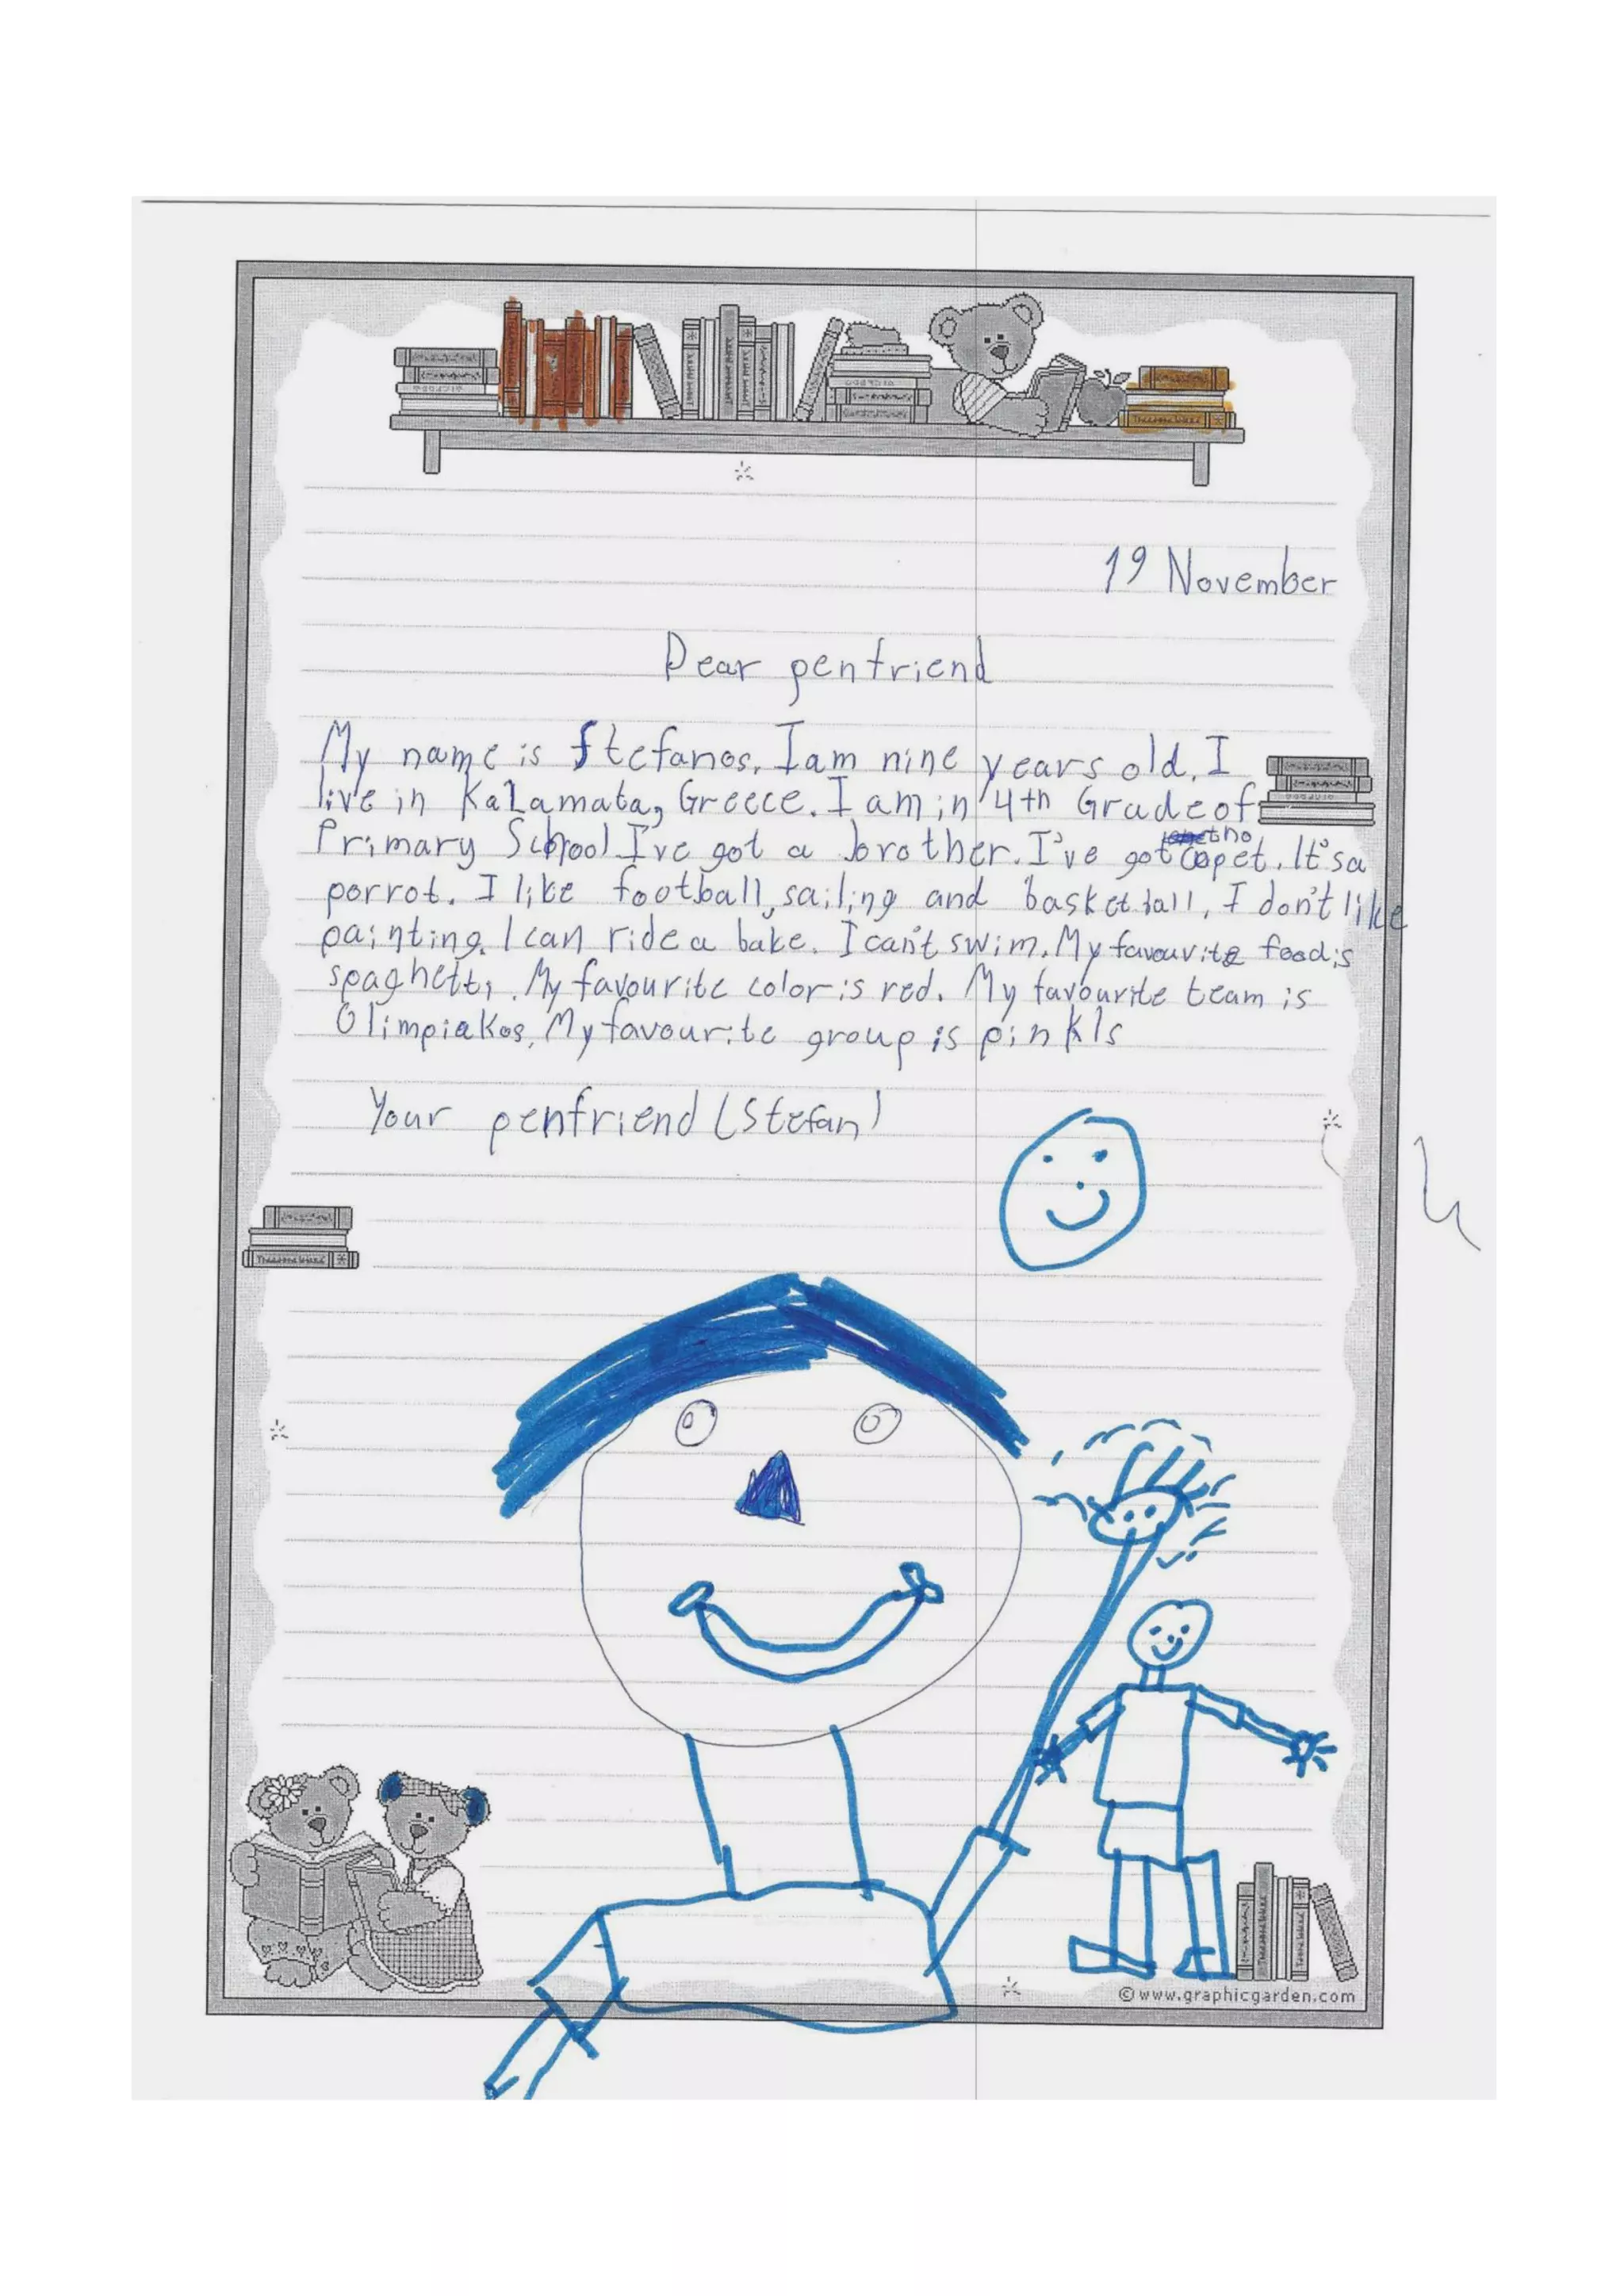 19 November
Dear penfriend
My name is Stefanos. I am nine years old. I
live in Kalamata, Greece. I am in 4th Grade of
Primary School I've got a brother. I've got a pet. It's a
porrot. I like football, sailing and basketball, I don't like
painting. I can ride a bake. I can't swim. My favourite food is
spaghetti. My favourite color is red. My favourite team is
Olimpiakos. My favourite group is pinkls
Your penfriend (Stefan)
©www.graphicgarden.com